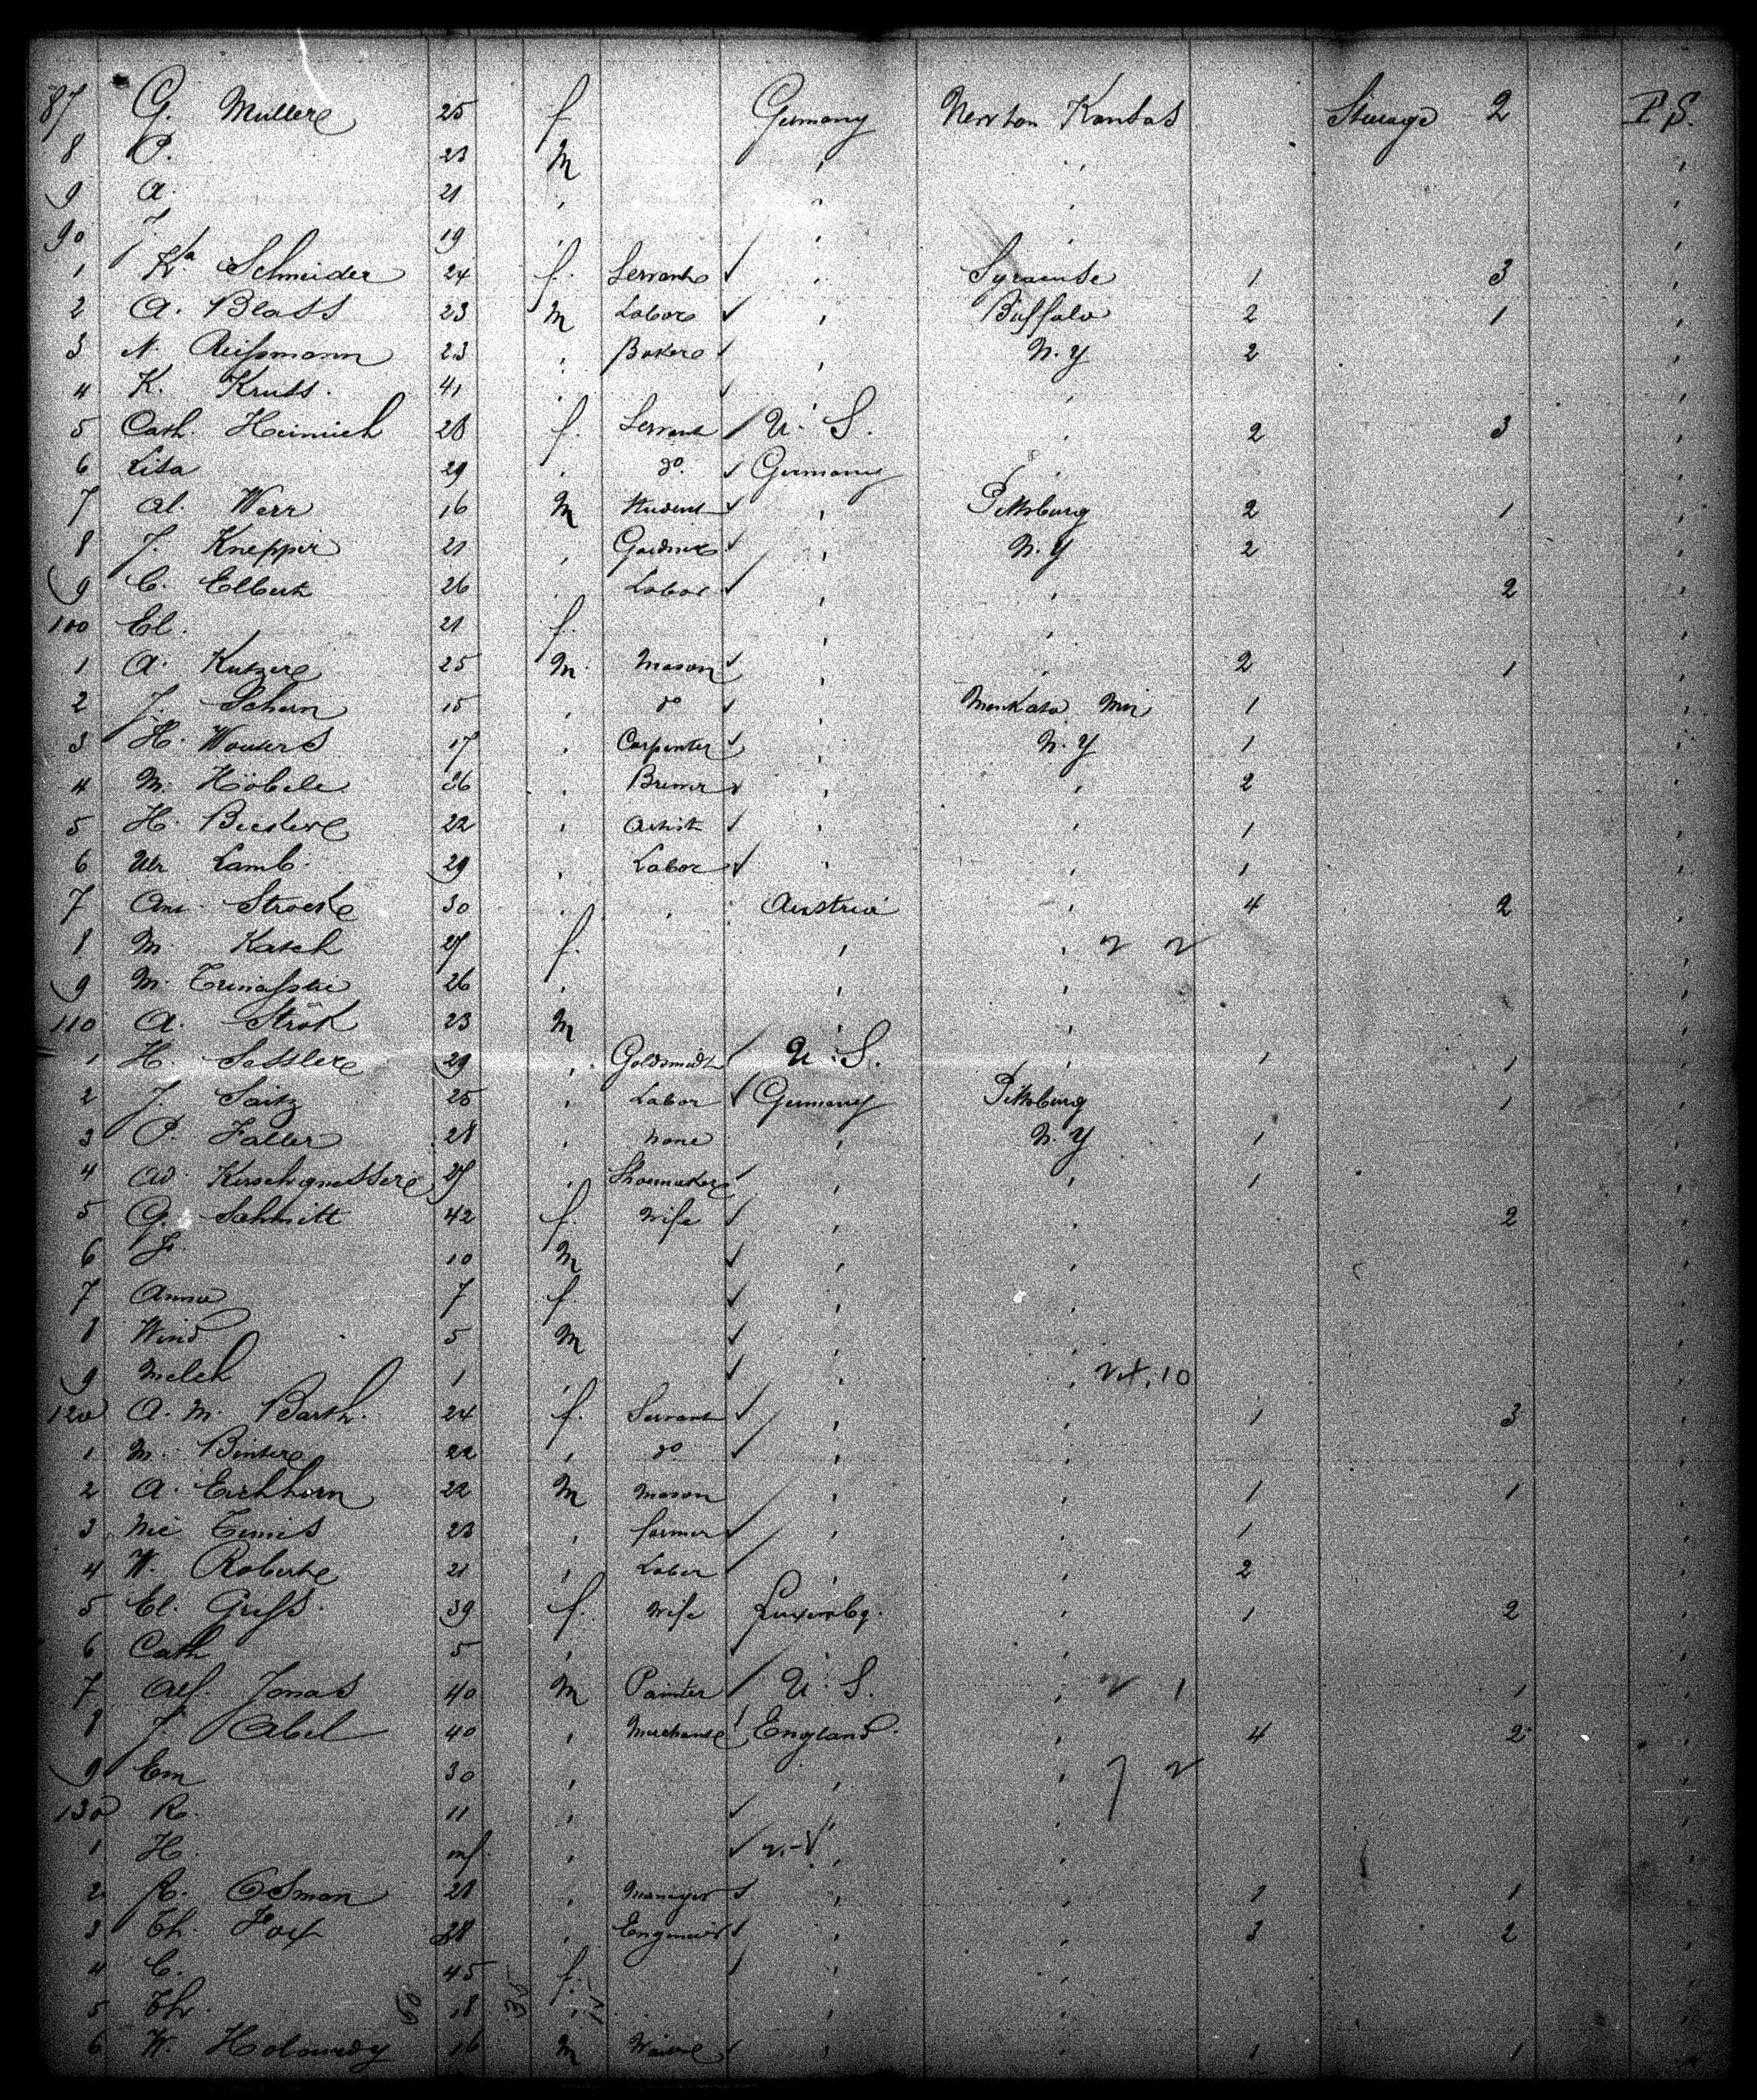 87 G. Muller 25 f Germany Newton Kansas Steerage 2 P.S.
8 P. 23 M , , ,
9 A. 21 , , , ,
90 J. 19 , , , ,
1 Ka Schneider 24 f. Servant ✓ , Syracuse 1 3 ,
2 A. Blass 23 M Labor ✓ , Buffalo 2 1 ,
3 N. Reissmann 23 , Baker ✓ , N.Y 2 ,
4 K. Kruss. 41 , ✓ , ,
5 Cath. Heinrich 28 f. Servant ✓ U. S. , 2 3 ,
6 Lisa 29 , do. ✓ Germany , ,
7 Al. Werr 16 M Student ✓ , Pittsburg 2 1 ,
8 J. Knepper 21 , Gardner ✓ , N.Y 2 ,
9 C. Elbert 26 , Labor ✓ , , 2 ,
100 El. 21 f. , , ,
1 A. Kutzer 25 M. Mason ✓ , , 2 1 ,
2 J. Schern 15 , do ✓ , Mankato Min 1 ,
3 H. Wouters 17 , Carpenter ✓ , N.Y 1 ,
4 M. Höbele 26 , Brewer ✓ , , 2 ,
5 H. 22 , Artist ✓ , , 1 ,
6 Ulr Lamb. 29 , Labor ✓ , , 1 ,
7 Ant. 30 , , Austria , 4 2 ,
8 M. Katsch 27 f. , , ,
9 M. 26 , , , ,
110 A. Strök 23 M , , ,
1 H. Sessler 29 , Goldsmidt ✓ U. S. , 1 1 ,
2 J. Saitz 25 , Labor ✓ Germany Pittsburg 1 ,
3 P. Faller 28 , None , N.Y 1 ,
4 Ad. 27 , Shoemaker ✓ , , 1 ,
5 G. Schmitt 42 f. Wife ✓ , , 2 ,
6 Jr. 10 M ✓ , , ,
7 Anna 7 f ✓ , , ,
8 Wend 5 M ✓ , , ,
9 Melch 1 , ✓ , , ,
120 A. M. Barth. 24 f. Servant ✓ , , 1 3 ,
1 M. Binter 22 , do. ✓ , , ,
2 A. Eichhorn 22 M Mason ✓ , , 1 1 ,
3 Nic 23 , farmer ✓ , , 1 ,
4 W. Robert 21 , Labor ✓ , , 2 ,
5 El. 39 f. Wife Luxembg. , 1 2 ,
6 Cath 5 , ✓ , , ,
7 Alf. Jonas 40 M Painter ✓ U. S. , 1 ,
8 J. Abel 40 , Merchant England. , 4 2 ,
9 Em 30 , , , ,
130 R. 11 , ✓ , ,
1 H. inf. , ✓ , , ,
2 R. Osman 28 , Manager ✓ , , 1 1 ,
3 Th. Fox 28 , Engineer ✓ , , 3 2 ,
4 C. 45 f. ✓ , , ,
5 Th. 18 , , , ,
6 W. 16 M ✓ , , 1 1 ,